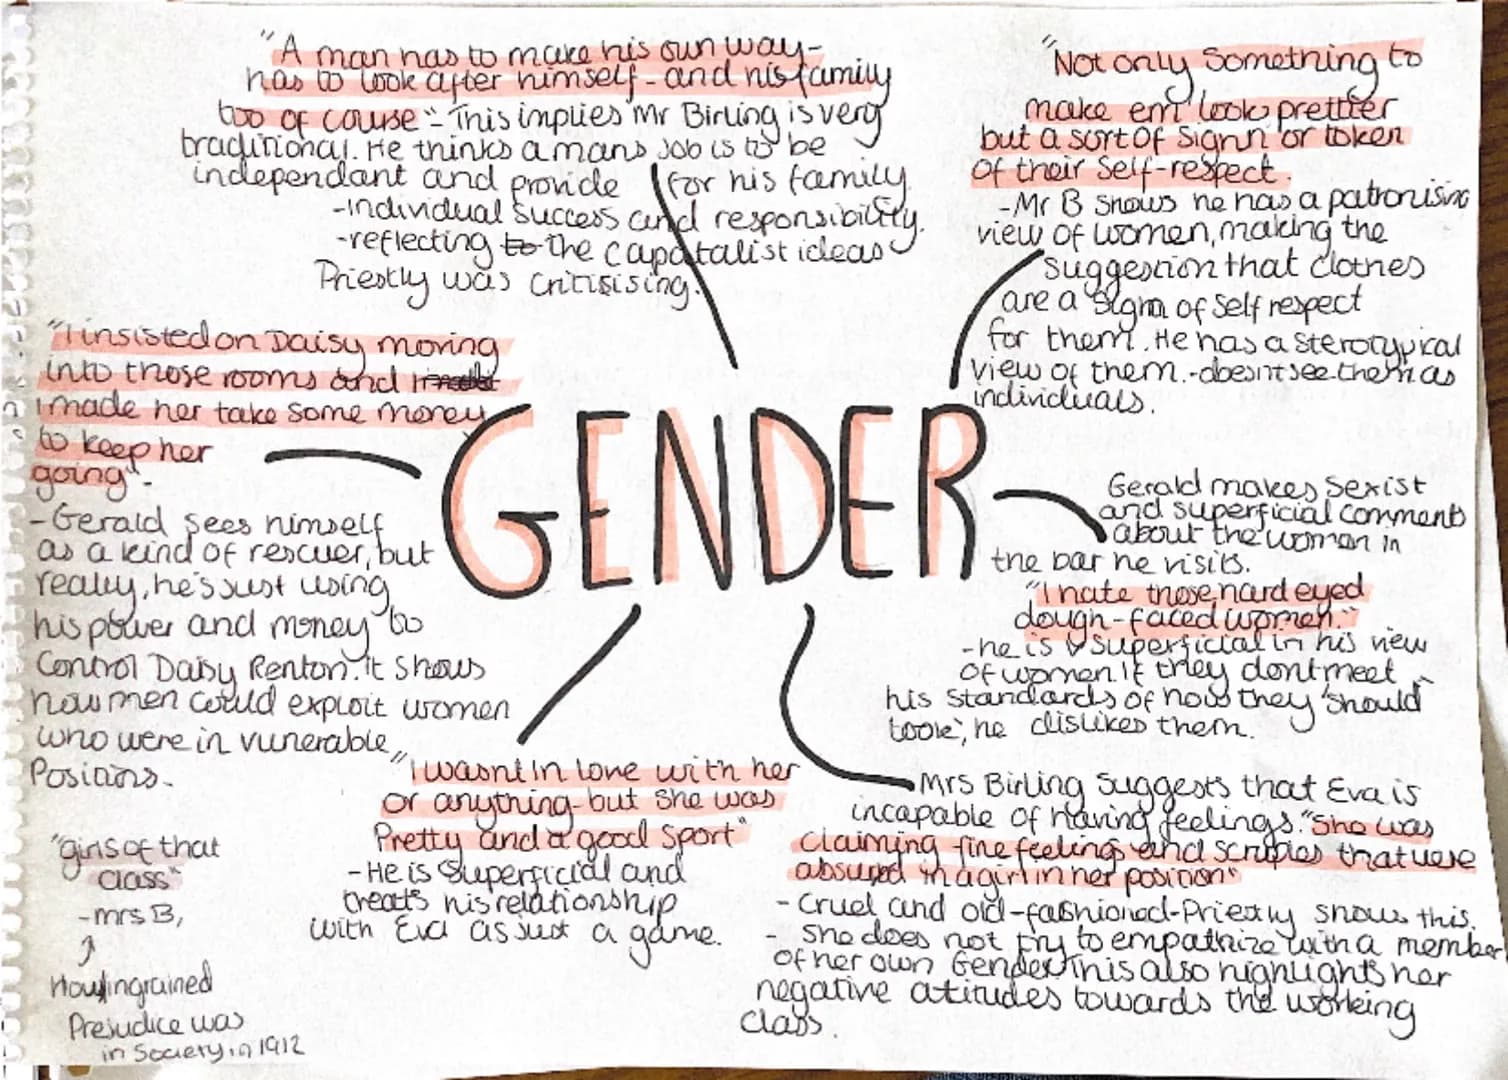 "A man has to make his own way-
has to look after himself - and his family
too of course" - This implies Mr Birling is very
traditional. He thinks a mans job is to be
independant and provide for his family.
-Individual success and responsibility.
-reflecting to the capatalist ideas
Priestly was critisising.
"Not only Something to
make em' look prettier
but a sort of sign or token
of their Self-respect.
-Mr B shows he has a patronising
view of women, making the
suggestion that clothes
are a sign of self respect
for them. He has a sterotypical
view of them. -doesn't see them as
individuals.
"I insisted on Daisy moving
into those rooms and I made
I made her take some money
to keep her
going" -
-Gerald sees himself
as a kind of rescuer, but
really, he's just using
his power and money to
Control Daisy Renton. It shows
how men could exploit women
who were in vunerable
Posions.
GENDER
Gerald makes sexist
and superficial comments
about the women in
the bar he visits.
"I hate those hard eyed
dough-faced women."
-he is superficial in his view
of women if they dont meet
his standards of how they 'should
look', he dislikes them.
"I wasnt in love with her
or anything-but she was
Pretty and a good sport"
-He is superficial and
treats his relationship
with Eva as just a game.
Mrs Birling suggests that Eva is
incapable of having feelings. "She was
claiming fine feelings and scruples that were
absurd in a girl in her position"
- Cruel and old-fashioned-Priestly shows this.
- She does not try to empathize with a member
of her own Gender. This also highlights her
negative atitudes towards the working
class.
"girls of that
class"
-mrs B,
How ingrained
Prejudice was
in Society in 1912